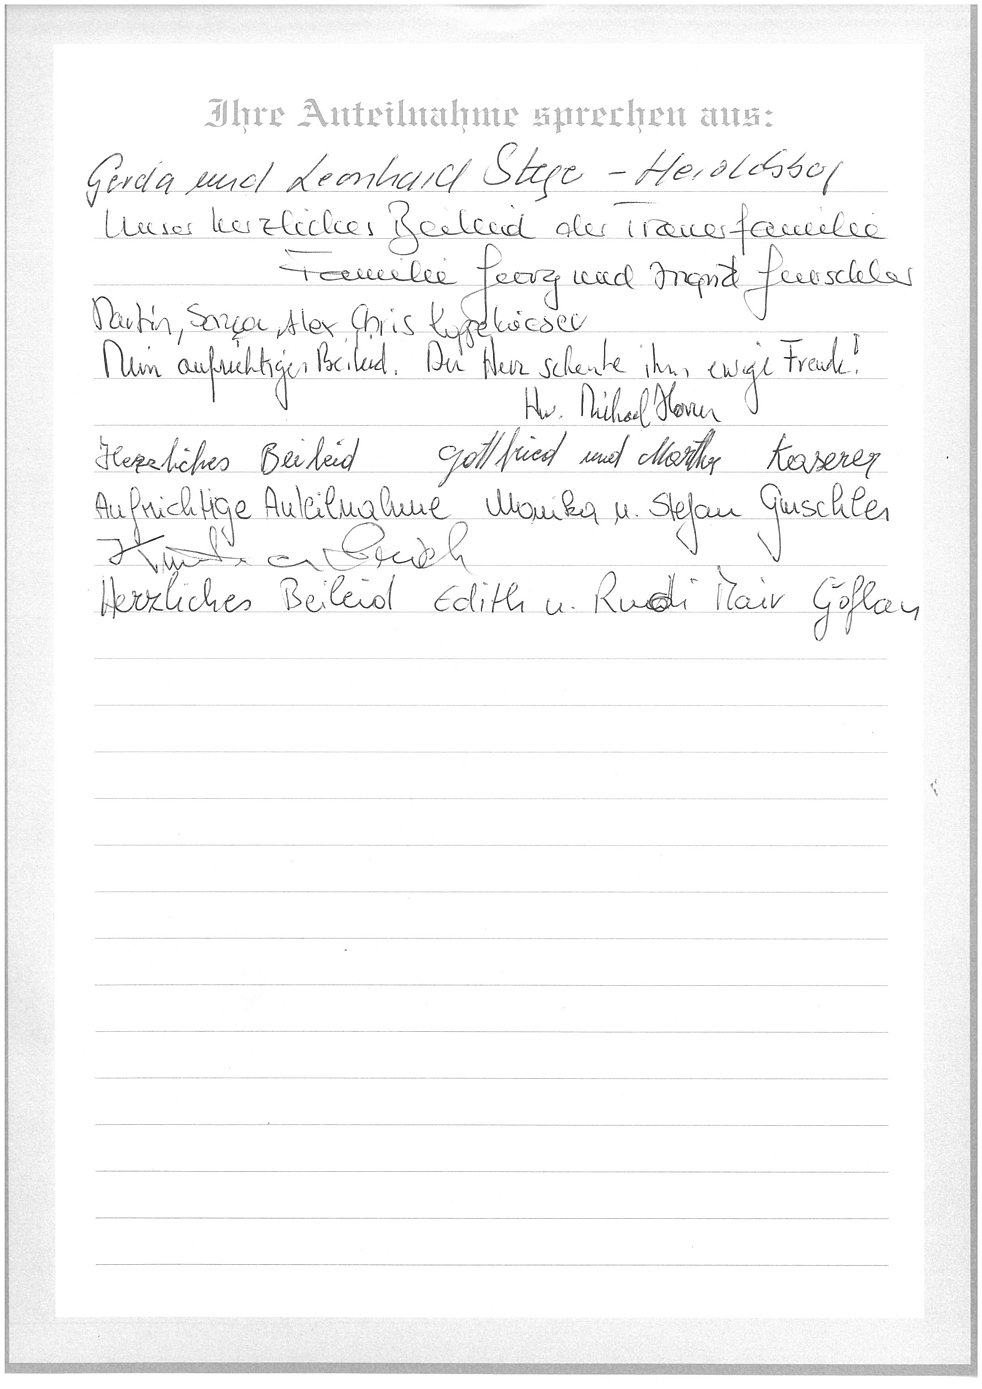 Ihre Anteilnahme sprechen aus:
Gerda und Leonhard
Unser herzliches Beileid der Trauerfamilie
Familie Georg und Ingrid Gurschler
Martin, Sonja, Alex Chris
Mein aufrichtiges Beileid. Der Herr schenke ihm ewige Freude!
Hw. Michael Horrer
Herzliches Beileid Gottfried und Martha Kaserer
Aufrichtige Anteilnahme Monika u. Stefan Gurschler
Herzliches Beileid Edith u. Rudi Mair Göflan